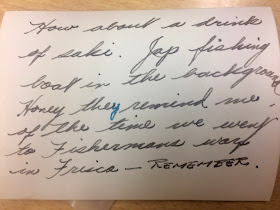 How about a drink
of saki. Jap fishing
boat in the background
Honey they remind me
of the time we went
to Fishermans warf
in Frisco - REMEMBER.